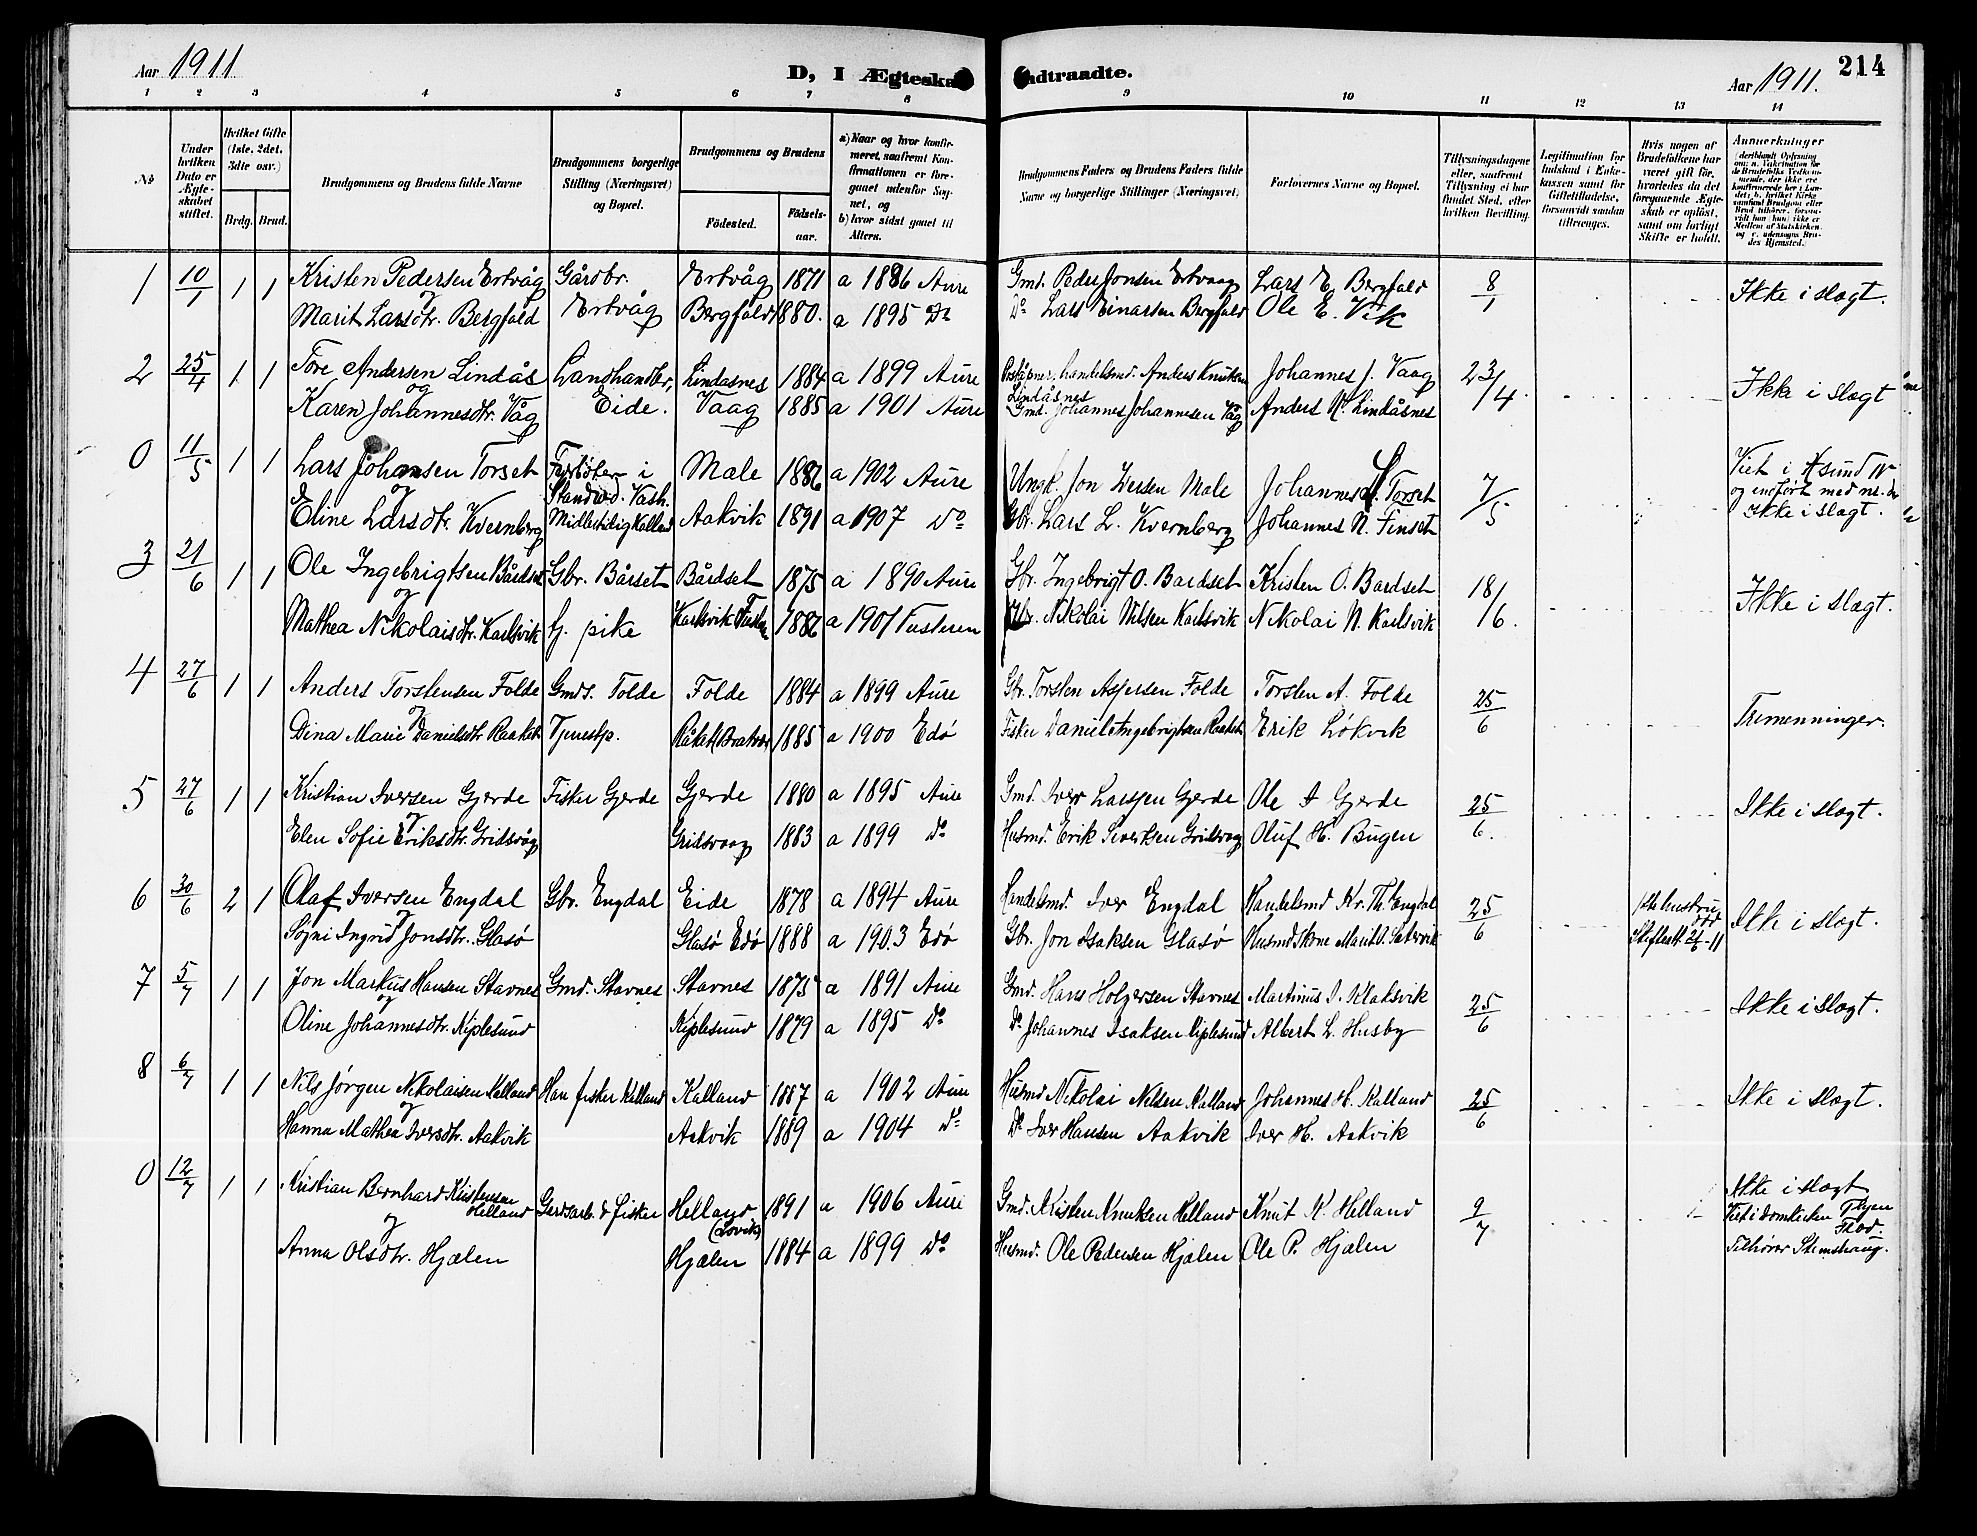 Aar 1911
D, I Ægteska
ndtraadte.
Aar 1911.
214
1 2 3 4 5 6 7 8 9 10 11 12 13 14
№
Under hvilken Dato er Ægteskabet stiftet.
Hvilket Gifte (1ste, 2det, 3die osv.)
Brdg. Brud.
Brudgommens og Brudens fulde Navne
Brudgommens borgerlige Stilling (Næringsvei) og Bopæl.
Brudgommens og Brudens
Fødested.
Fødselsaar.
a) Naar og hvor konfirmeret, saafremt Konfirmationen er foregaaet udenfor Sognet, og
b) hvor sidst gaaet til Alters.
Brudgommens Faders og Brudens Faders fulde Navne og borgerlige Stillinger (Næringsvei)
Forlovernes Navne og Bopæl.
Tillysningsdagene eller, saafremt Tillysning ei har fundet Sted, efter hvilken Bevilling.
Legitimation for Indskud i Enkekassen samt for Giftetilladelse, forsaavidt saadan tiltrænges.
Hvis nogen af Brudefolkene har været gift før, hvorledes da det foregaaende Ægteskab er opløst, samt om lovligt Skifte er holdt.
Anmærkninger
1 10/1 1 1 Kristen Pedersen Ertvåg Gårdbr. Ertvåg 1871 a 1886 Aure Gmd. Peder Jonsen Ertvaag Lars E. Bergfald 8/1 Ikke i slægt.
og
Marit Larsdtr. Bergfald Ertvåg Bergfald 1880. a 1895 Do Do Lars Einarsen Bergfald Ole E. Vik
2 25/4 1 1 Tore Andersen Lindås Landhandler, Lindasnes 1884 a 1899 Aure Poståpner, handelsmd. Anders Knutsen Lindåsnes Johannes J. Vaag 23/4 Ikke i slægt
og
Karen Johannesdtr. Våg Eide. Vaag 1885 a 1901 Aure Gmd. Johannes Johannesen Våg Anders K. Lindåsnes
0 11/5 1 1 Lars Johansen Torset i Male 1886 a 1902 Aure Ungk. Jon Iversen Male Johannes L. Torset 7/5 Viet i
og Vash. og indført med nr.
Eline Larsdtr. Kvernberg Midlertidig Kalland Aakvik 1891 a 1907 Do Gbr. Lars L. Kvernberg Johannes N. Finset Ikke i slægt.
3 21/6 1 1 Ole Ingebrigtsen Bårdset Gbr. Bårset Bårdset 1875 a 1890 Aure Gbr. Ingebrigt O. Bardset Kristen O. Bardset 18/6. Ikke i slægt.
og
Mathea Nikolaisdtr. Karlsvik G. pike Karlsvik Tustern 1886 a 1901 Tusteren Gbr. Nikolai Nilsen Karlsvik Nikolai N. Karlsvik
4 27/6 1 1 Anders Torstensen Folde Gmds. Folde Folde 1884 a 1899 Aure Gbr. Torsten Aspersen Folde Torsten A. Folde 25/6 Tremenninger.
og
Dina Marie Danielsdtr Raaket Tjenestp. Råket Bratvær 1885 a 1900 Edø Fisker Daniel Ingebrigtsen Raaket Erik Løkvik
5 27/6 1 1 Kristian Iversen Gjerde Fisker Gjerde Gjerde 1880 a 1895 Aure Gmd. Iver Larssen Gjerde Ole I Gjerde 25/6. Ikke i slægt.
og
Elen Sofie Eriksdtr. Gridsvåg Gridsvaag 1883 a 1899 Do Husmd. Erik Sivertsen Gridsvag Oluf H. Bugen
6 30/6 2 1 Olaf Iversen Engdal Gbr. Engdal Eide 1878 a 1894 Aure Handelsmd. Iver Engdal Handelsmd Kr. Th. Engdal 25/6 1ste hustru død Ikke i slægt.
og
Sogni Ingrid Jonsdtr. Glasø Glasø Edø 1888 a 1903 Edø Gbr. Jon Isaksen Glasø Husmdskone Marit O. Sætervik
7 5/7 1 1 Jon Markus Hansen Stavnes Gmd. Stavnes Stavnes 1875 a 1891 Aure Gmd. Hans Holgersen Stavnes Martinus I. Klaksvik 25/6 Ikke i slægt.
og
Oline Johannesdtr. Kiplesund Kiplesund 1879 a 1895 Do Do Johannes Isaksen Kiplesund Albert L. Husby
8 6/7 1 1 Nils Jörgen Nikolaisen Kalland Han fisker Kalland Kalland 1887 a 1902 Aure Husmd Nikolai Nilsen Kalland Johannes H. Kalland 25/6 Ikke i slægt.
og
Hanna Mathea Iversdtr. Aakvik Aakvik 1889 a 1904 Do Do Iver Hansen Aakvik Iver H. Aakvik
0 12/7 1 1 Kristian Bernhard Kristensen Helland Gardsarb. & fisker Helland (Lovik) 1891 a 1906 Aure Gmd. Kristen Knutsen Helland Knut K. Helland 9/7 Ikke i slægt
og Viet i domkirken Thjem
Anna Olsdtr. Hjælen Hjælen 1884 a 1899 Do Husmd. Ole Pedersen Hjælen Ole P. Hjælen Tilhører Stemshaug.